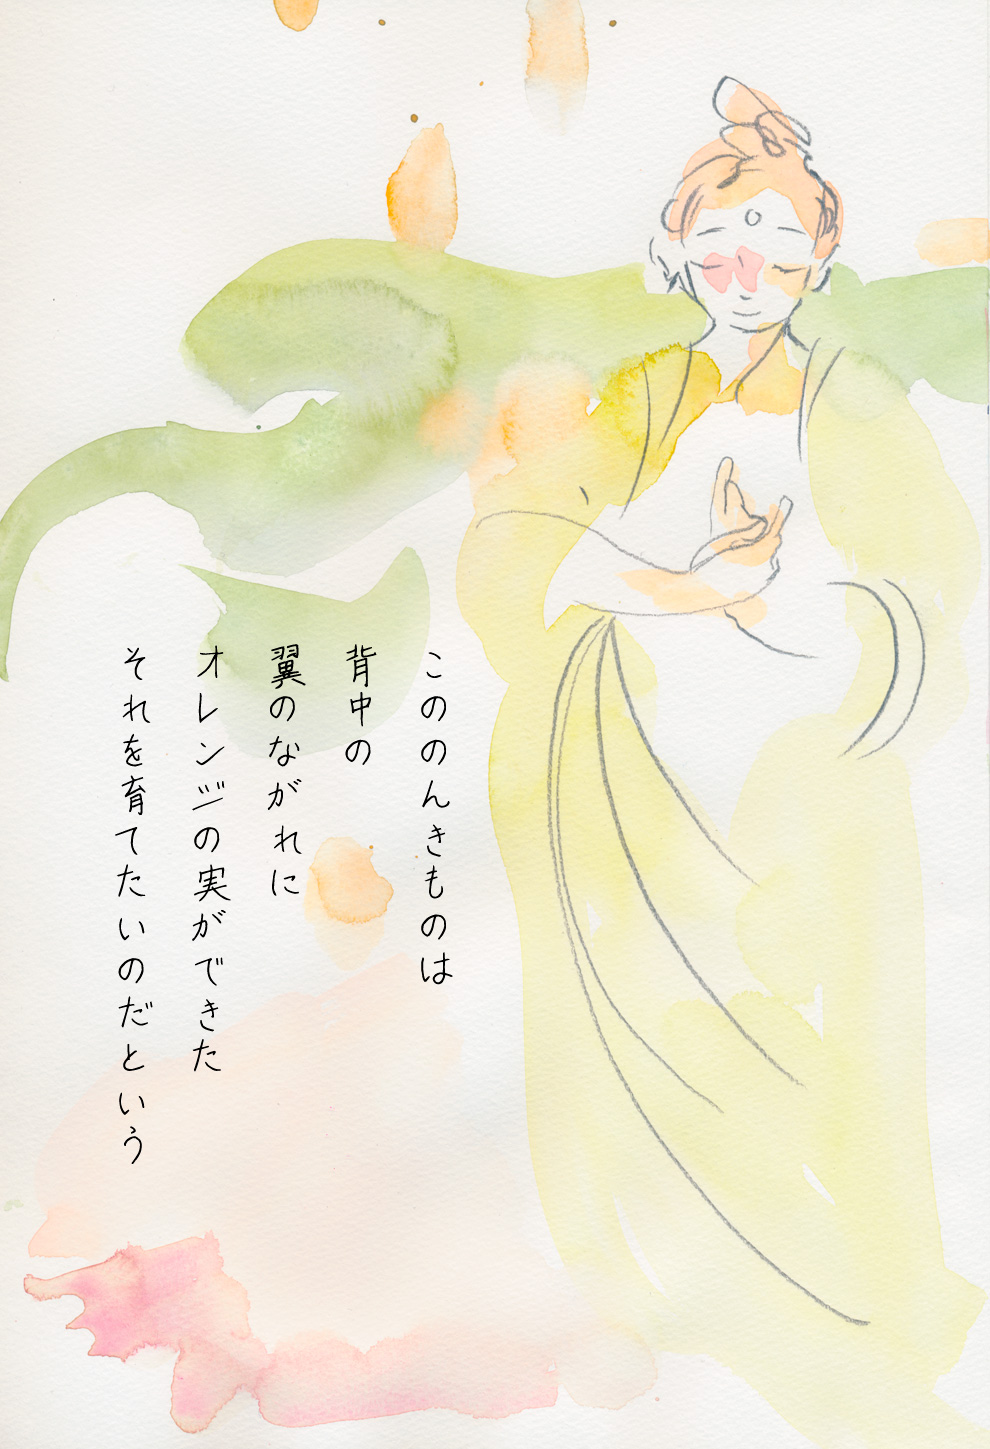 こののんきものは
背中の
翼のながれに
オレンジの実ができた
それを育てたいのだという